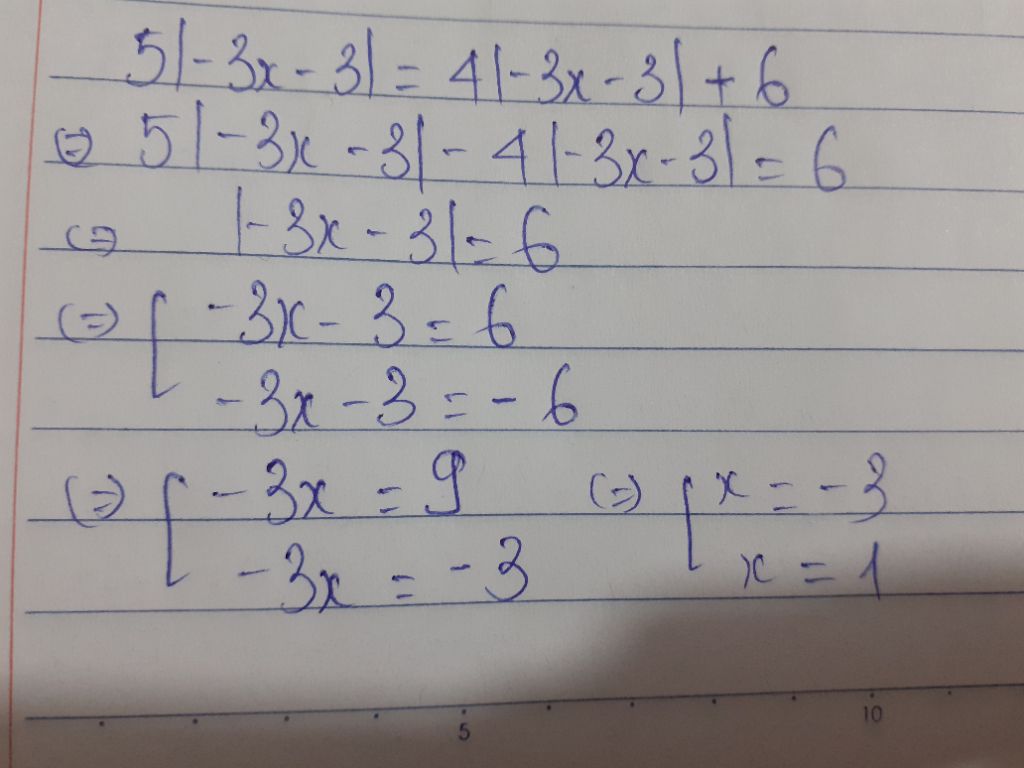 5|-3x - 3| = 4|-3x - 3| + 6
(=) 5|-3x - 3| - 4|-3x - 3| = 6
(=) |-3x - 3| = 6
(=) [ -3x - 3 = 6
-3x - 3 = -6
(=) [ -3x = 9 (=) [ x = -3
-3x = -3 x = 1
5 10